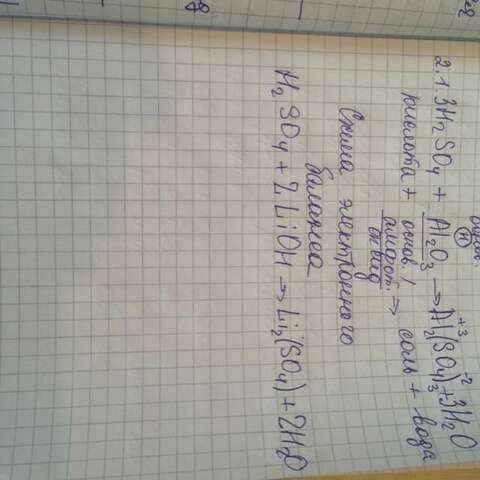 основ.
(H)
2.1. 3H₂SO₄ + Al₂O₃ → Al₂⁺³(SO₄)₃⁻² + 3H₂O
кислота + основ./ амфот. оксид → соль + вода
Схема электронного
баланса
H₂SO₄ + 2LiOH → Li₂(SO₄) + 2H₂O